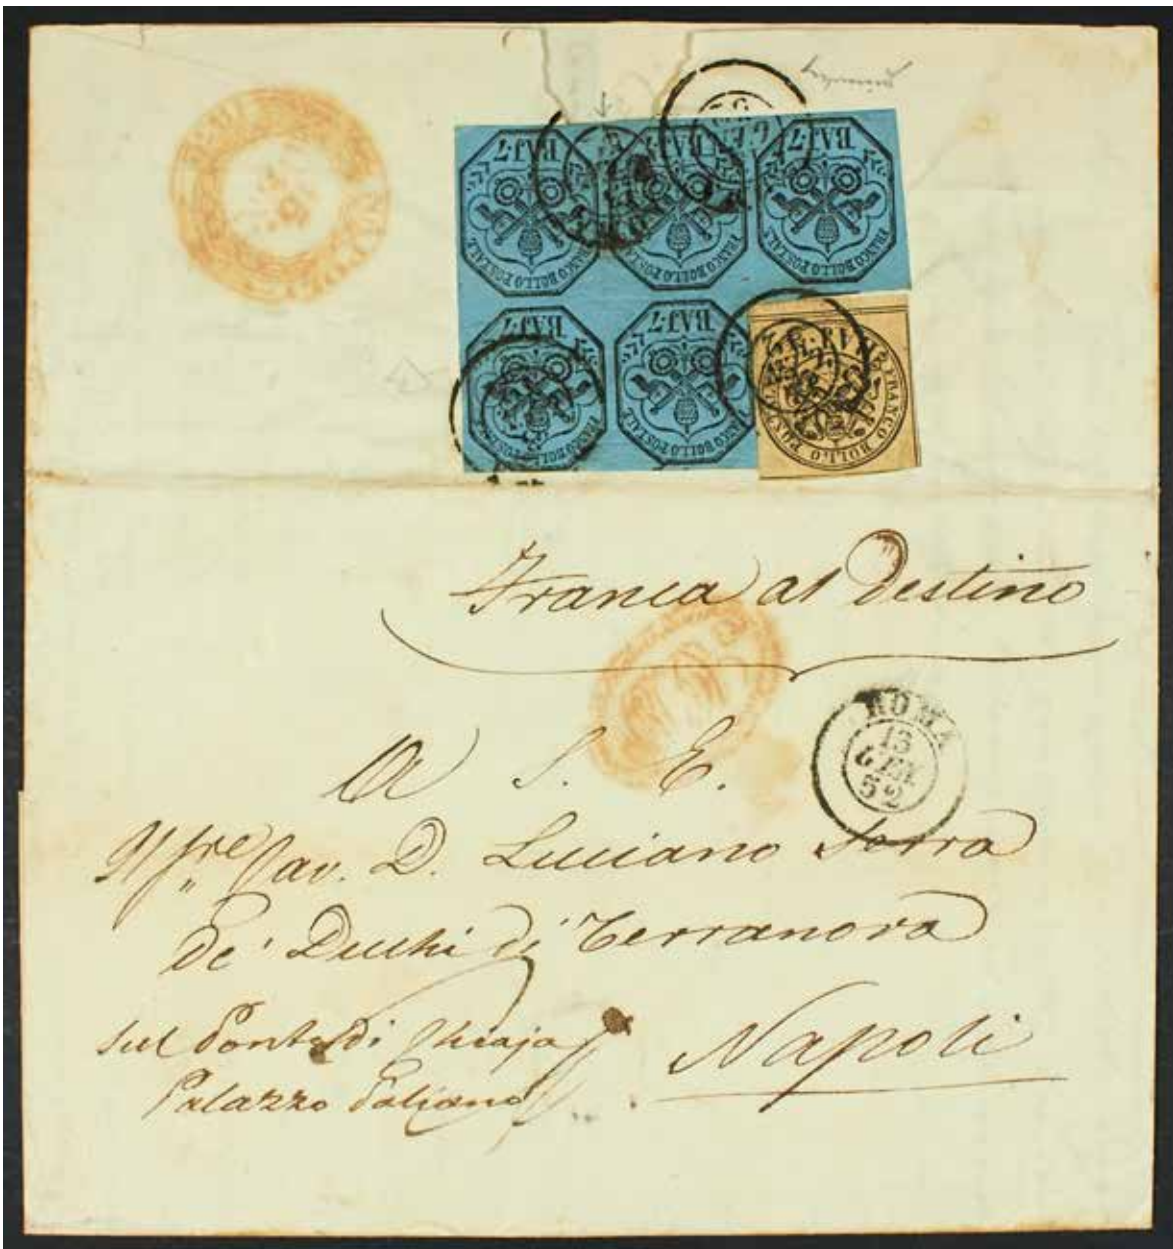 BAJ. 7 BAJ. 7 BAJ. 7
FRANCO BOLLO POSTALE FRANCO BOLLO POSTALE FRANCO BOLLO POSTALE
BAJ. 7 BAJ. 7
FRANCO BOLLO POSTALE FRANCO BOLLO POSTALE
FRANCO BOLLO
Franca al Destino
ROMA
13
GEN
52
A S. E.
Cav. D. Luciano Serra
de' Duchi di Terranova
sul Ponte di Chiaja
Palazzo
Napoli